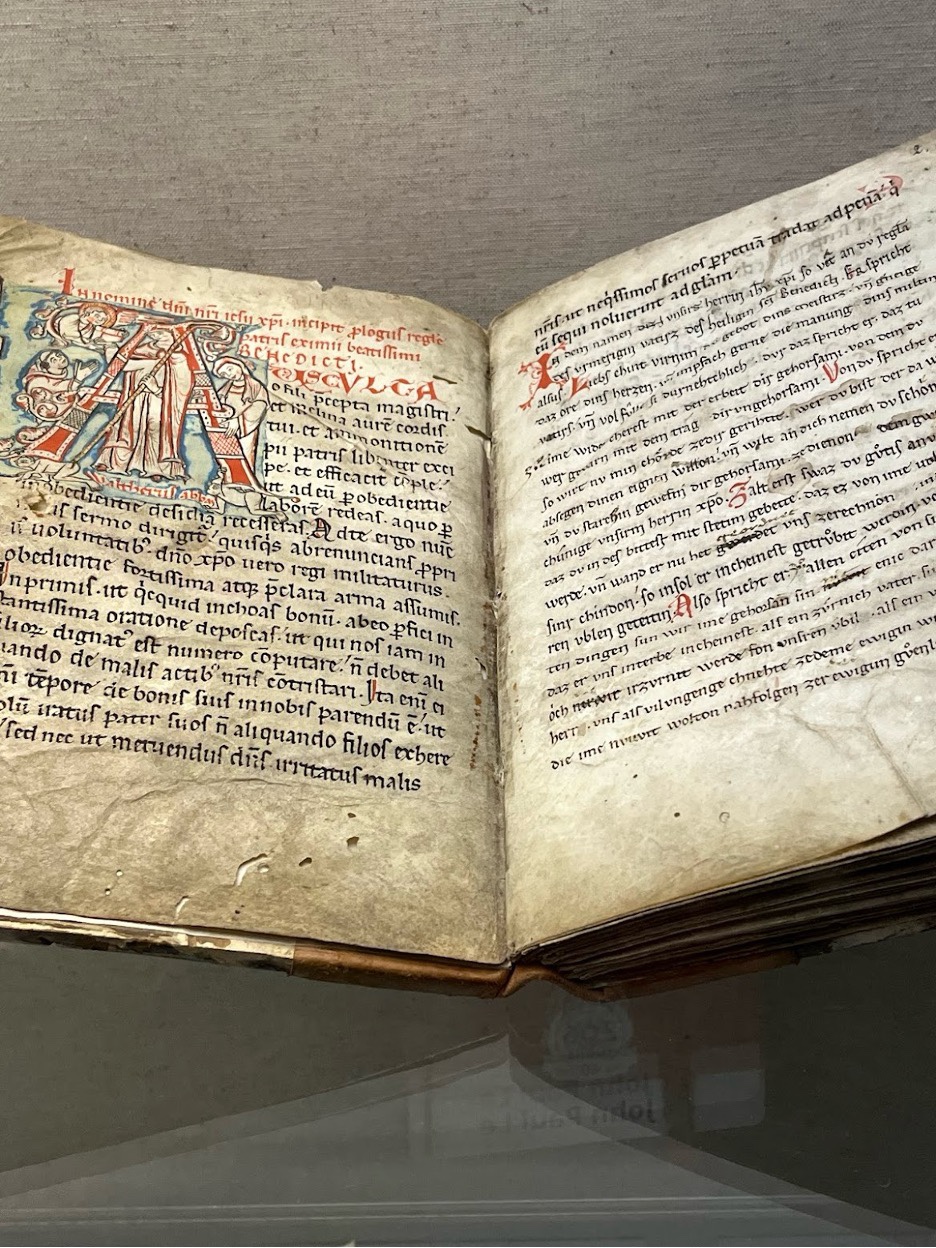 In nomine dm̄ nr̄i iesu xp̄i. incipit ꝓlogus regłe
patris eximii beatissimi
BENEDICTI.
A
OBSCULTA
o fili p̄cepta magistri.
et inclina aurē cordis
tui. et ammonitionē
pii patris libenter exci
pe. et efficacit̄ cōple.
ut ad eū ꝑ obedientie
laborē redeas. a quo ꝑ
Waltherius abbas
inobedientie desidiā recesseras. Ad te ergo nūc
sermo dirigit̄. quisq̇s abrenuncians ꝓpri
voluntatibꝰ. dn̄o xp̄o vero regi militaturus.
obedientie fortissima atq; p̄clara arma assumis.
In primis. ut qcquid inchoas bonū. ab eo ꝑfici in
stantissima oratione deposcas. ut qui nos iam in
filioꝝ dignatꝰ est numero cōputare. n̄ debet ali
quando de malis actibꝰ nr̄is cōtristari. Ita enī ei
ōni tēpore de bonis suis in nobis parendū ē. ut
solū iratus pater suos n̄ aliquando filios exhere
sed nec ut metuendus dn̄s irritatus malis
2.
nr̄is. ut neq̇ssimos servos ꝑpetuā tradat ad penā. q̇
eū sequi noluerint ad głam.
In dem namen unsirs herrin ihū xp̄i so vāt an dv regła
des vatirs des heiligin sc̄i Benedicti. Er spricht
alsus. Liebs chint virnim dv gebot dins meistirs. vn̄ geneige
daz ore dins herzen. vn̄ impfach gerne die manung dins miltin
vatirs. vn̄ vol si durnehteclich. dvr daz spricht er. daz tu
ime widir cherest mit der erbeit dir gehorsami. von dem du
wer mit dem trag dir ungehorsami. Von dv spricht er
so wirt nv min chôrde ze dir gerihtet. swer dv bist der da
absegen dinen eignen willon. vn̄ wilt an dich nemen dv schōn
vn̄ dv starchin gewefni dir gehorsami. ze dienon dem gw
chunige unsirm herrin xp̄o. Zalt erst swaz dv gôtis anv
daz dv in des bittest mit stetim gebete. daz ez von ime
werde. vn̄ wand er nu het vns zerechnon in
sinr chindon. so insol er incheinest getrôbit werdin. vo
ren ublen getetin. Also spricht er. ze allen citen von
ten dingen sun wir ime gehorsan sin enie dar
daz er vns interbe incheinest. als ein zurnich vater. si
ôch irzvrnit werde fon unsren vbil. als ein v
herr. uns als vil ungenge chnehte zedeme ewigin
die ime nvwit wolton nahfolgen zer ewigun